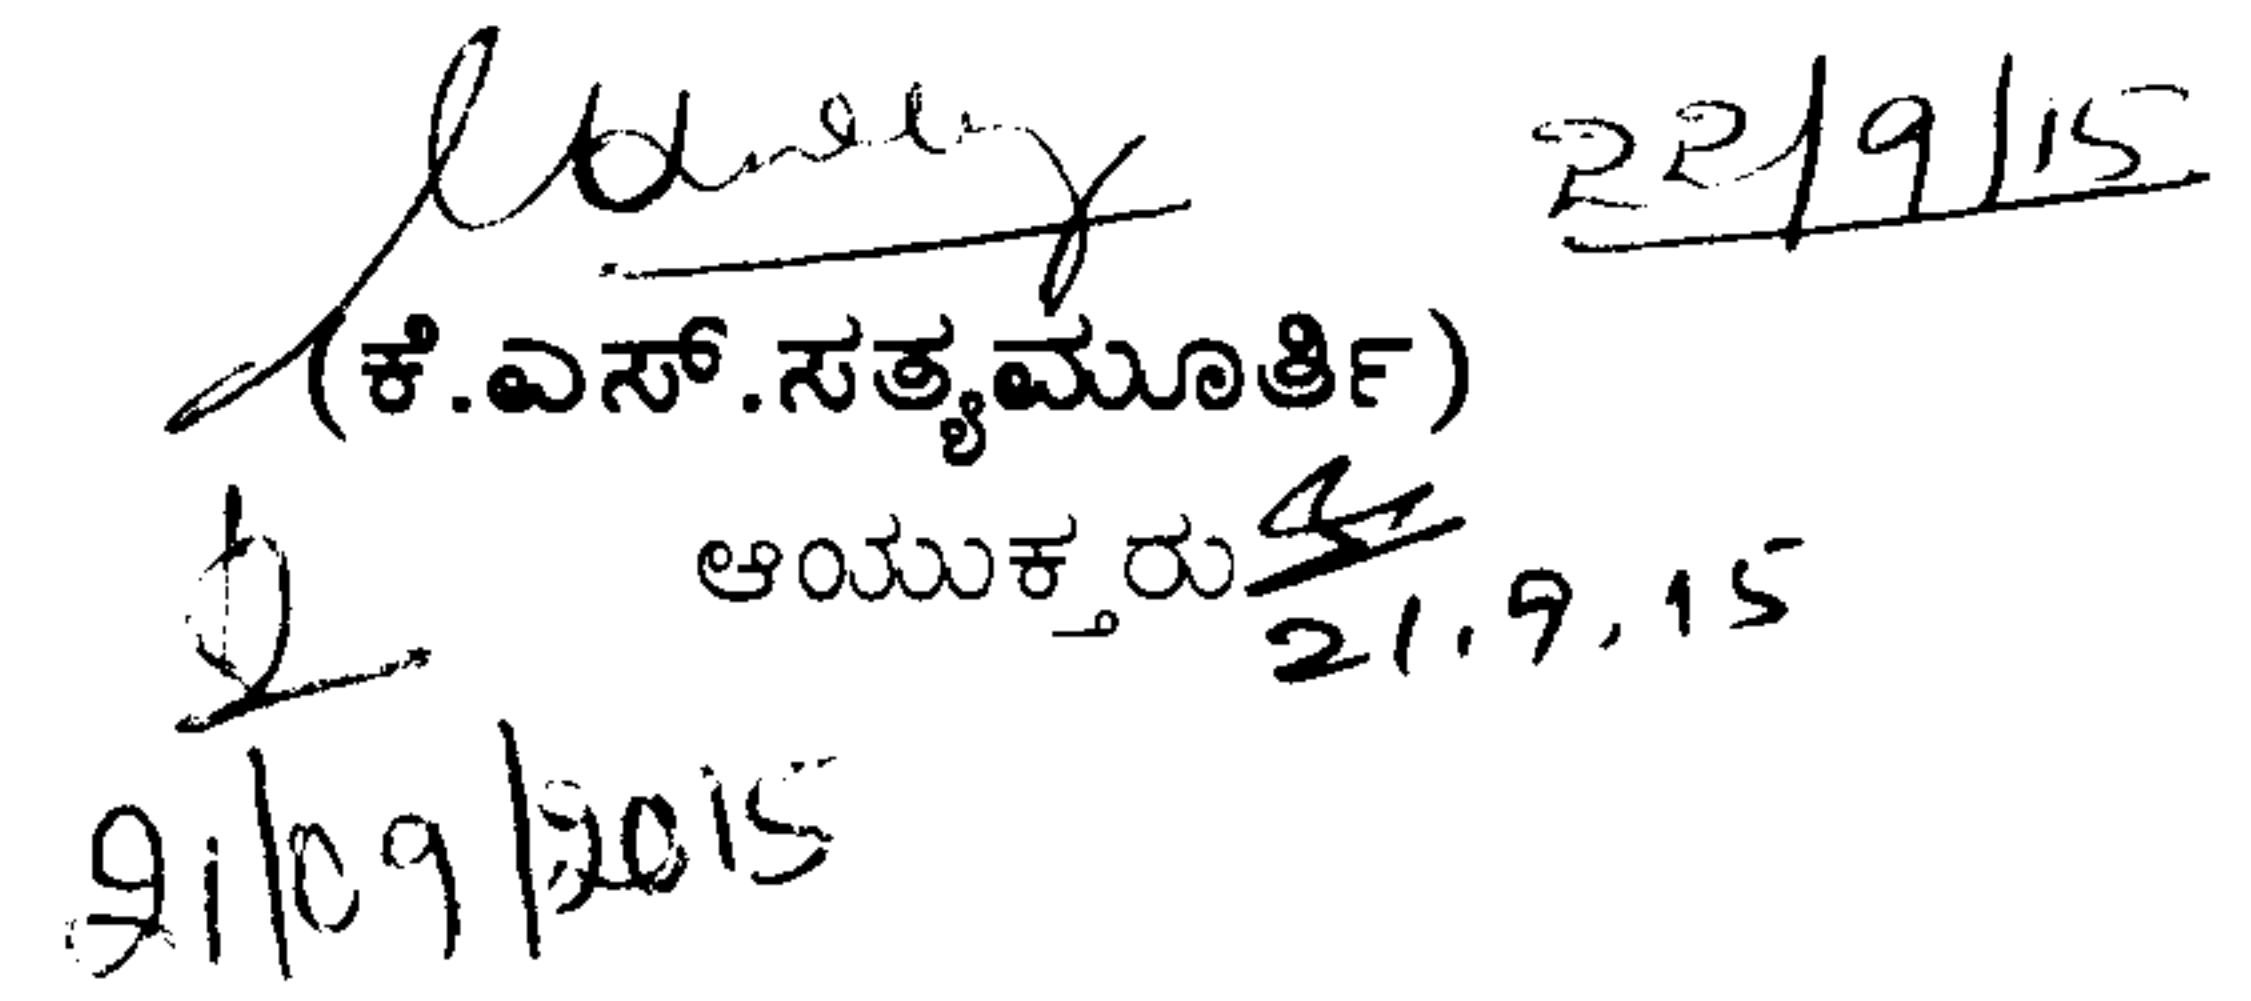 22/9/15
(ಕೆ.ಎಸ್.ಸತ್ಯಮೂರ್ತಿ)
ಆಯುಕ್ತರು
21.9.15
21/09/2015